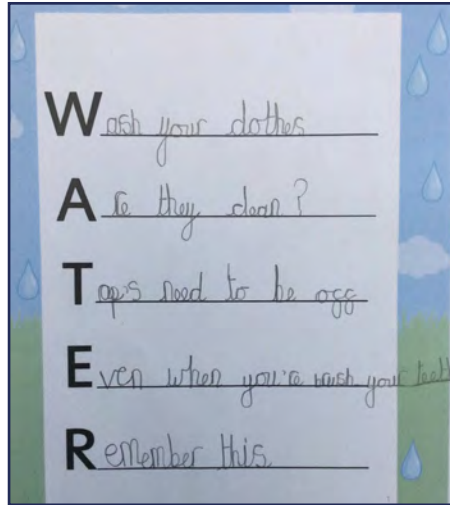 Wash your clothes
Are they clean?
Tap's need to be ogg
Even when you're brush your teeth
Remember this.